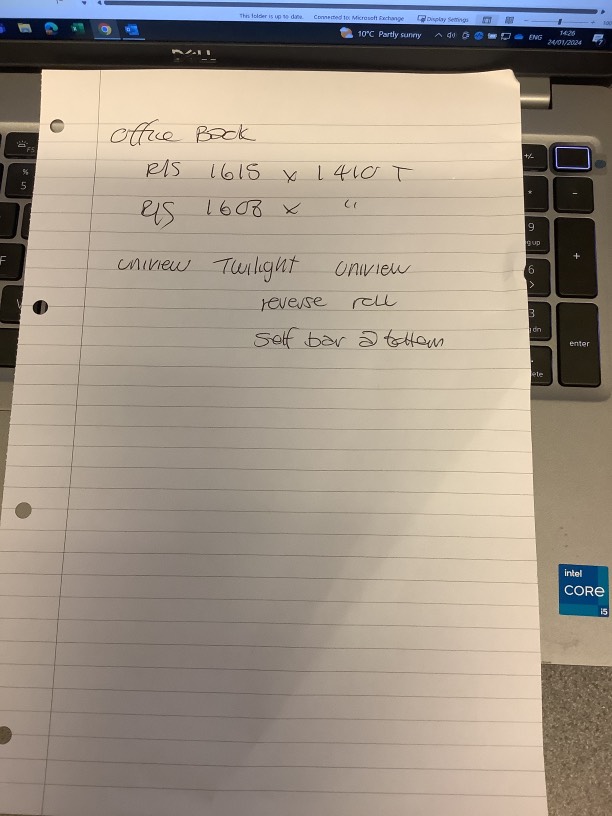 This folder is up to date. Connected to: Microsoft Exchange Display Settings
10°C Partly sunny ENG 14:26
24/01/2024
DELL
Office Back
R/S 1615 x 1410 T
R/S 1608 x "
uniview Twilight uniview
reverse roll
self bar @ bottom
F5
%
5
F
+/-
*
-
9
+
6
>
3
enter
intel
CORE
i5